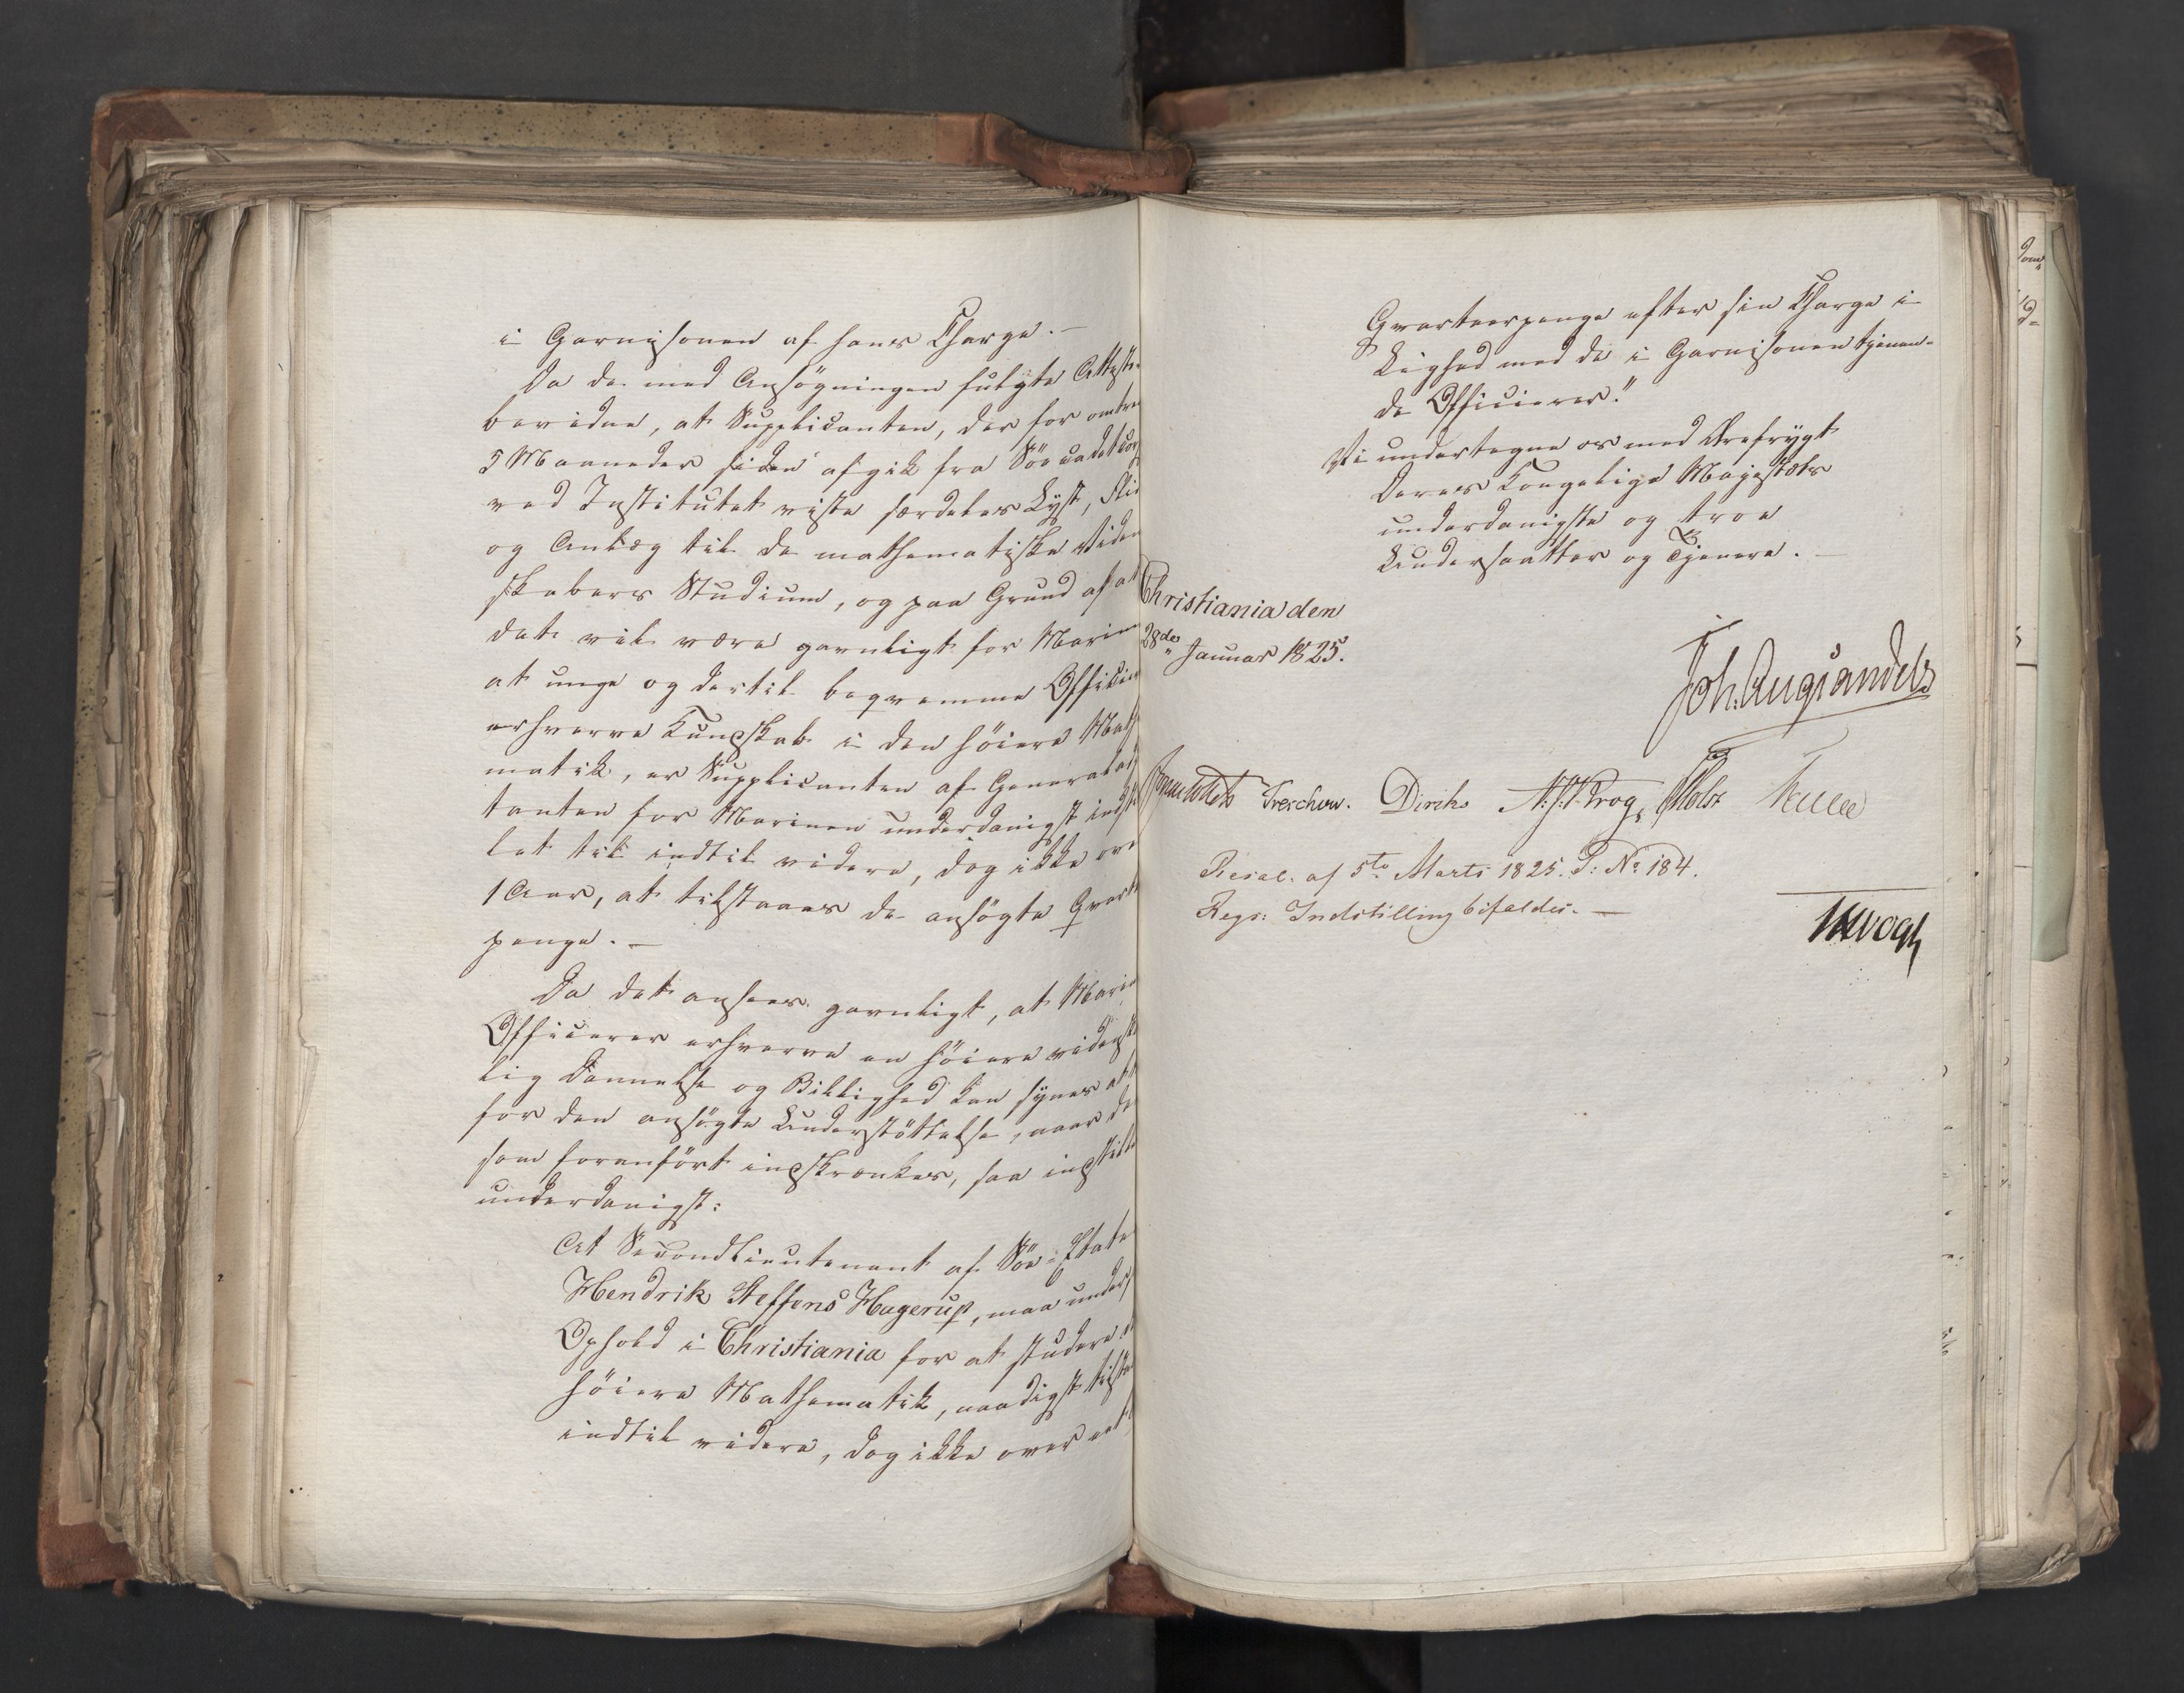 i Garnisonen af hans Charge. —
Da de med Ansögningen fulgte Atteste
bevidne, at Supplicanten, der for omtre
5 Maaneder siden afgik fra Söecadetcor
ved Institutet viste særdeles Lyst, Fli
og Anlæg til de mathematiske Viden
skabers Studium, og paa Grund af at
det vil være gavnligt for Marin
at unge og dertil beqvemme Officie
erhverve Kundskab i den höiere Math
matik, er Supplicanten af Generalad
tanten for Marinen underdanigst indst
let til indtil videre, dog ikke ove
1 Aar, at tilstaaes de ansögte Qvart
penge. —
Da det ansees gavnligt, at Marin
Officerer erhverve en höiere vidensk
lig Dannelse og Billighed kan synes at
for den ansögte Understöttelse, naar de
som foranfört indskrænkes, saa indstill
underdanigst:
At Secondlieutenant af Söe-Etate
Hendrik Steffens Hagerup, maa under
Ophold i Christiania for at studere
höiere Mathematik, naadigst tilsta
indtil videre, dog ikke over eet
Qvarteerpenge efter sin Charge i
Lighed med de i Garnisonen tjenen-
de Officierer."
Vi undertegne os med Ærefrygt
Deres Kongelige Majestæts
underdanigste og troe
Undersaatter og Tjenere. —
Christiania den
28de Januar 1825.
Joh: Aug: Sandels
Treschow. Diriks Krog, Holst
Resol. af 5te Marts 1825. P: No 184.
Regs: Indstilling bifaldes. —
Vogt